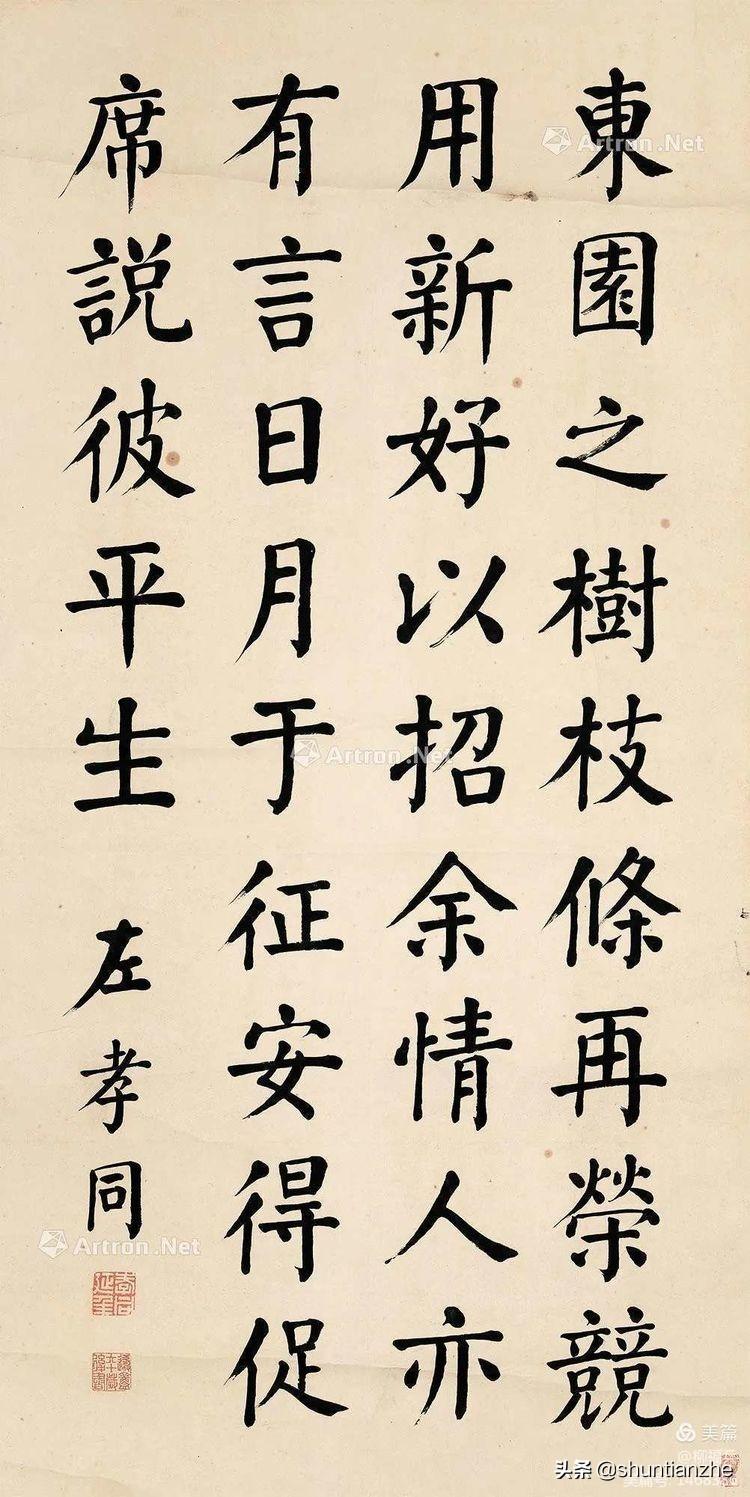 東園之樹枝條再榮競
用新好以招余情人亦
有言日月于征安得促
席説彼平生
左孝同
Artron.Net
Artron.Net
Artron.Net
美篇
头条 @shuntianzhe